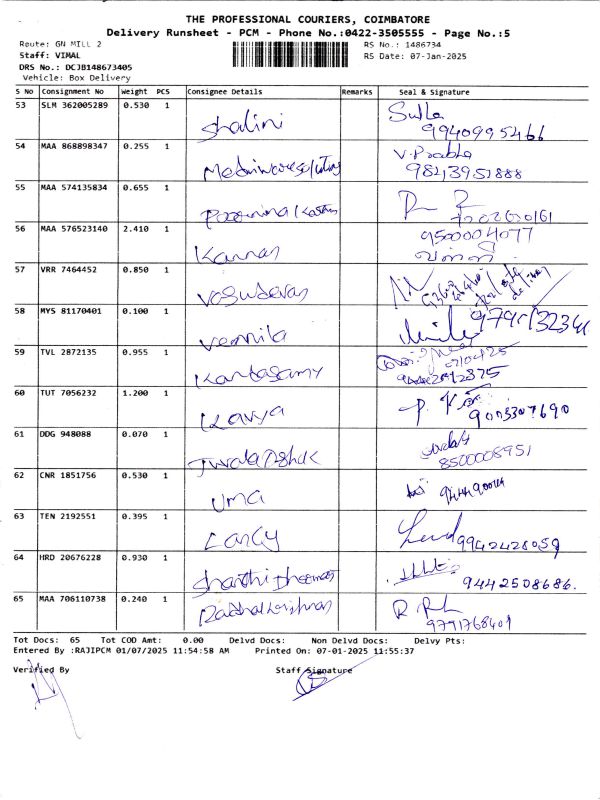 THE PROFESSIONAL COURIERS, COIMBATORE
Delivery Runsheet - PCM - Phone No.:0422-3505555 - Page No.:5
Route: GN MILL 2 RS No.: 1486734
Staff: VIMAL RS Date: 07-Jan-2025
DRS No.: DCJB148673405
Vehicle: Box Delivery
S No Consignment No Weight PCS Consignee Details Remarks Seal & Signature
53 SLM 362005289 0.530 1 Shalini
9940995466
54 MAA 868898347 0.255 1 V. Prabha
9843951888
55 MAA 574135834 0.655 1
56 MAA 576523140 2.410 1 Kannan 9500004077
57 VRR 7464452 0.850 1 Vasudevan
58 MYS 81170401 0.100 1 Vennila
59 TVL 2872135 0.955 1 Kantasamy
60 TUT 7056232 1.200 1 Kavya 9003307690
61 DDG 948088 0.070 1
8500008951
62 CNR 1851756 0.530 1 Uma
63 TEN 2192551 0.395 1 9942428059
64 HRD 20676228 0.930 1 9442508686.
65 MAA 706110738 0.240 1 Radhakrishnan
9791768401
Tot Docs: 65 Tot COD Amt: 0.00 Delvd Docs: Non Delvd Docs: Delvy Pts:
Entered By :RAJIPCM 01/07/2025 11:54:58 AM Printed On: 07-01-2025 11:55:37
Verified By Staff Signature